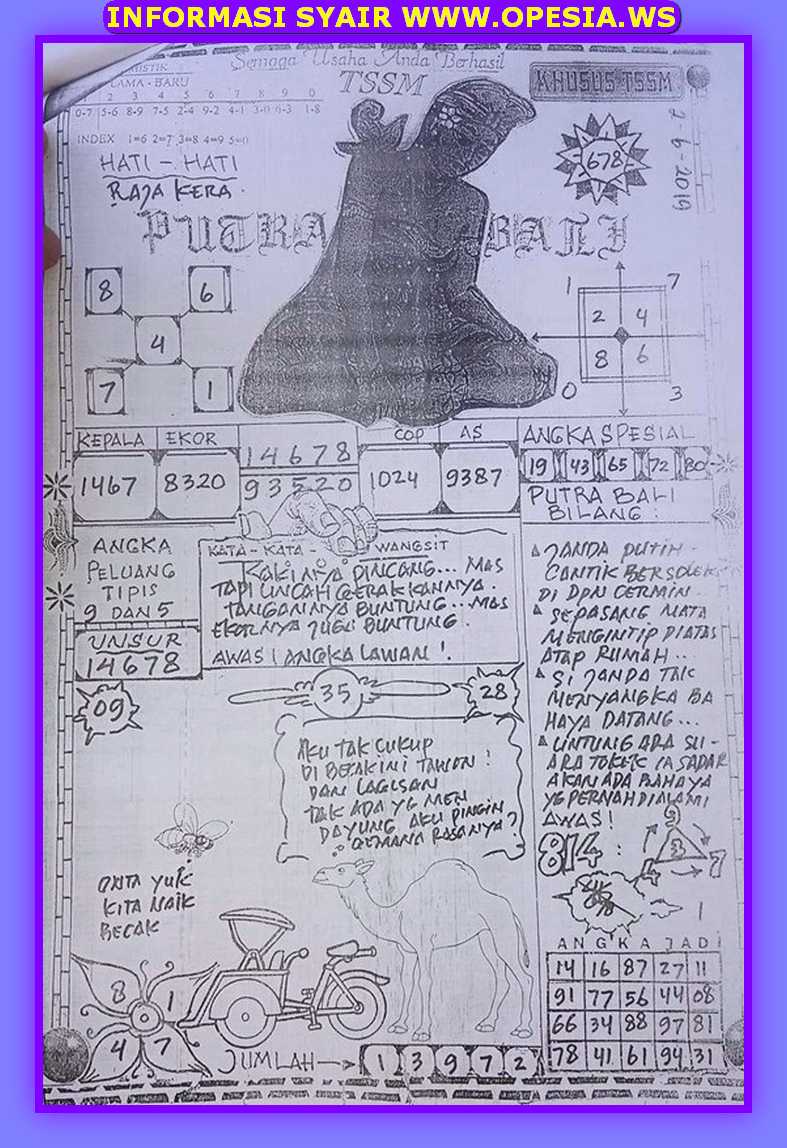 INFORMASI SYAIR WWW.OPESIA.WS
MISTIK
LAMA - BARU
Semoga Usaha Anda Berhasil
TSSM
KHUSUS TSSM
1 2 3 4 5 6 7 8 9 0
0-7 5-6 8-9 7-5 2-4 9-2 4-1 3-0 6-3 1-8
INDEX 1=6 2=7 3=8 4=9 5=0
2-6-2019
678
HATI - HATI
RAJA KERA.
PUTRA BALI
8 6
4
7 1
1 7
2 4
8 6
0 3
KEPALA EKOR
1467 8320
14678
93520
COP AS
1024 9387
ANGKA SPESIAL
19 43 65 72 80
PUTRA BALI
BILANG :
ANGKA
PELUANG
TIPIS
9 DAN 5
UNSUR
14678
KATA - KATA - WANGSIT
KAKINYA PINCANG... MAS
TAPI LINCAH GERAKKANNYA.
TANGANNYA BUNTUNG... MAS
EKORNYA JUGA BUNTUNG.
AWAS ! ANGKA LAWAN !
JANDA PUTIH
CANTIK BERSOLEK
DI DPN CERMIN.
SEPASANG MATA
MENGINTIP DIATAS
ATAP RUMAH..
SI JANDA TAK
MENYANGKA BA
HAYA DATANG...
UNTUNG ADA SU-
ARA TOKEK IA SADAR
AKAN ADA BAHAYA
YG PERNAH DIALAMI
AWAS!
814 :
9
3
4 7
1
09
35
28
AKU TAK CUKUP
DI BECAK INI TAWON !
DAN LAGI SAN
TAK ADA YG MEN
DAYUNG AKU PINGIN
GEMANA RASANYA ?
ONTA YUK
KITA NAIK
BECAK
8 1
4 7
JUMLAH
1 3 9 7 2
ANGKA JADI
14 16 87 27 11
91 77 56 44 08
66 34 88 97 81
78 41 61 94 31